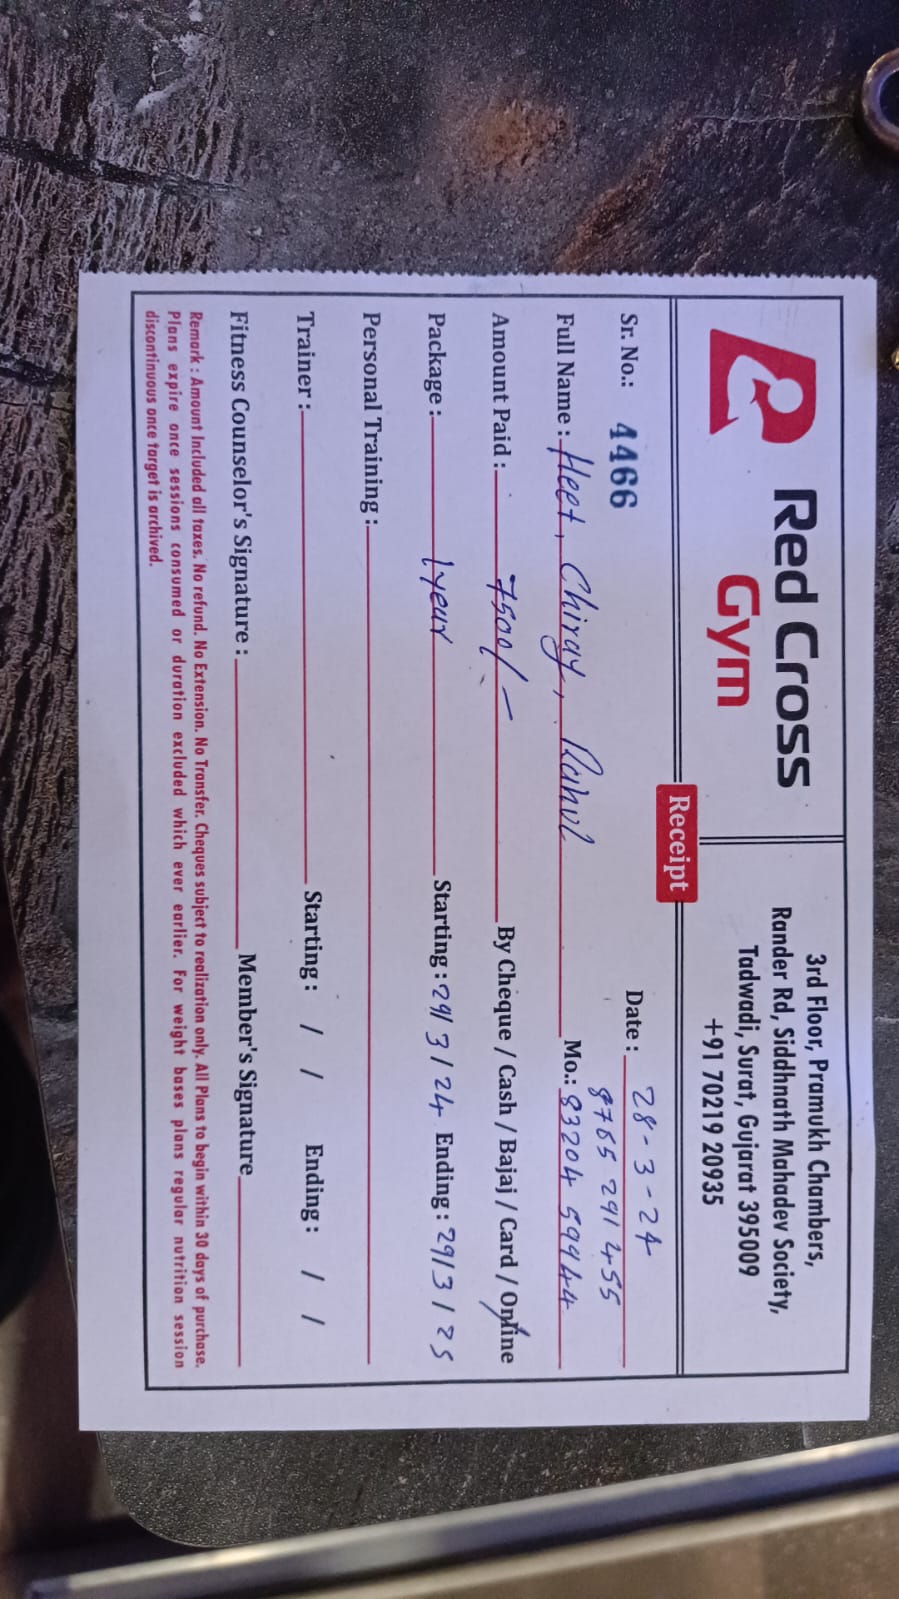 Red Cross
Gym
3rd Floor, Pramukh Chambers,
Rander Rd, Siddhnath Mahadev Society,
Tadwadi, Surat, Gujarat 395009
+91 70219 20935
Receipt
Sr. No.: 4466 Date : 28-3-24
8765 291 455
Full Name : Heet, Chirag, Rahul Mo.: 83204 59944
Amount Paid : 7500/- By Cheque / Cash / Bajaj / Card / Online
Package : 1 year Starting : 29/3/24 Ending : 29/3/25
Personal Training :
Trainer : Starting : / / Ending : / /
Fitness Counselor's Signature : Member's Signature
Remark : Amount Included all taxes. No refund. No Extension. No Transfer. Cheques subject to realization only. All Plans to begin within 30 days of purchase.
Plans expire once sessions consumed or duration excluded which ever earlier. For weight bases plans regular nutrition session
discontinuous once target is archived.